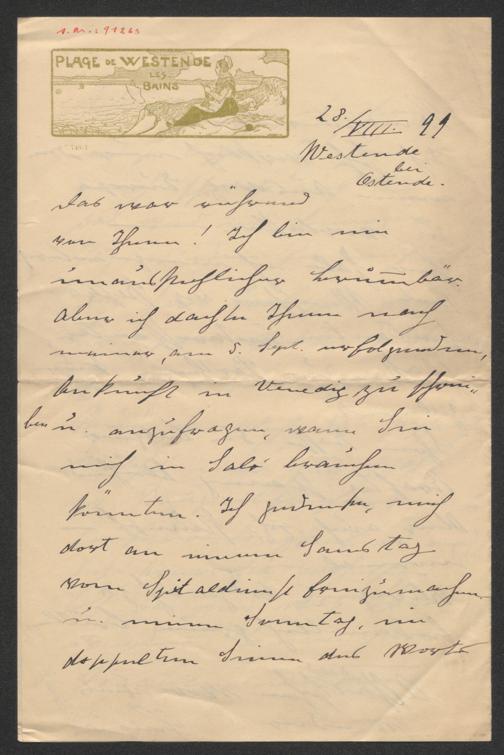 1.N.: 91263
PLAGE DE WESTENDE
LES
BAINS
28./VIII. 99
Westende
bei
Ostende.
Das war rührend
von Ihnen! Ich bin ein
unausstehlicher Brummbär.
Aber ich dachte Ihnen nach
meiner, am 5. Sept. erfolgenden,
Ankunft in Venedig zu schrei-
ben u. anzufragen, wann Sie
mich in Salò brauchen
könnten. Ich gedenke, mich
dort an einem Samstag
vom Spitaldienst freizumachen
u. einen Sonntag, im
doppelten Sinne des Worts